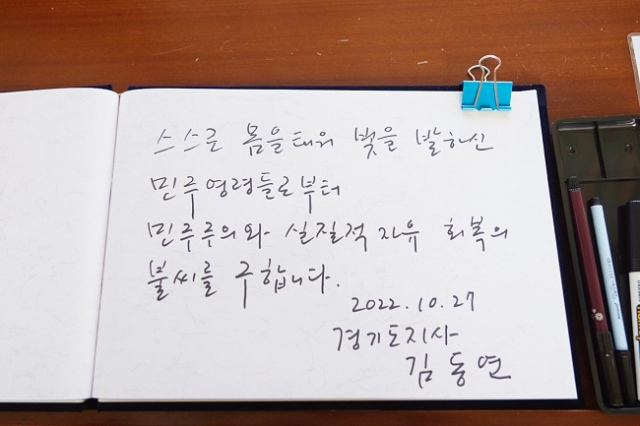 스스로 몸을 태워 빛을 발하신
민주영령들로부터
민주주의와 실질적 자유 회복의
불씨를 구합니다.
2022.10.27
경기도지사
김동연